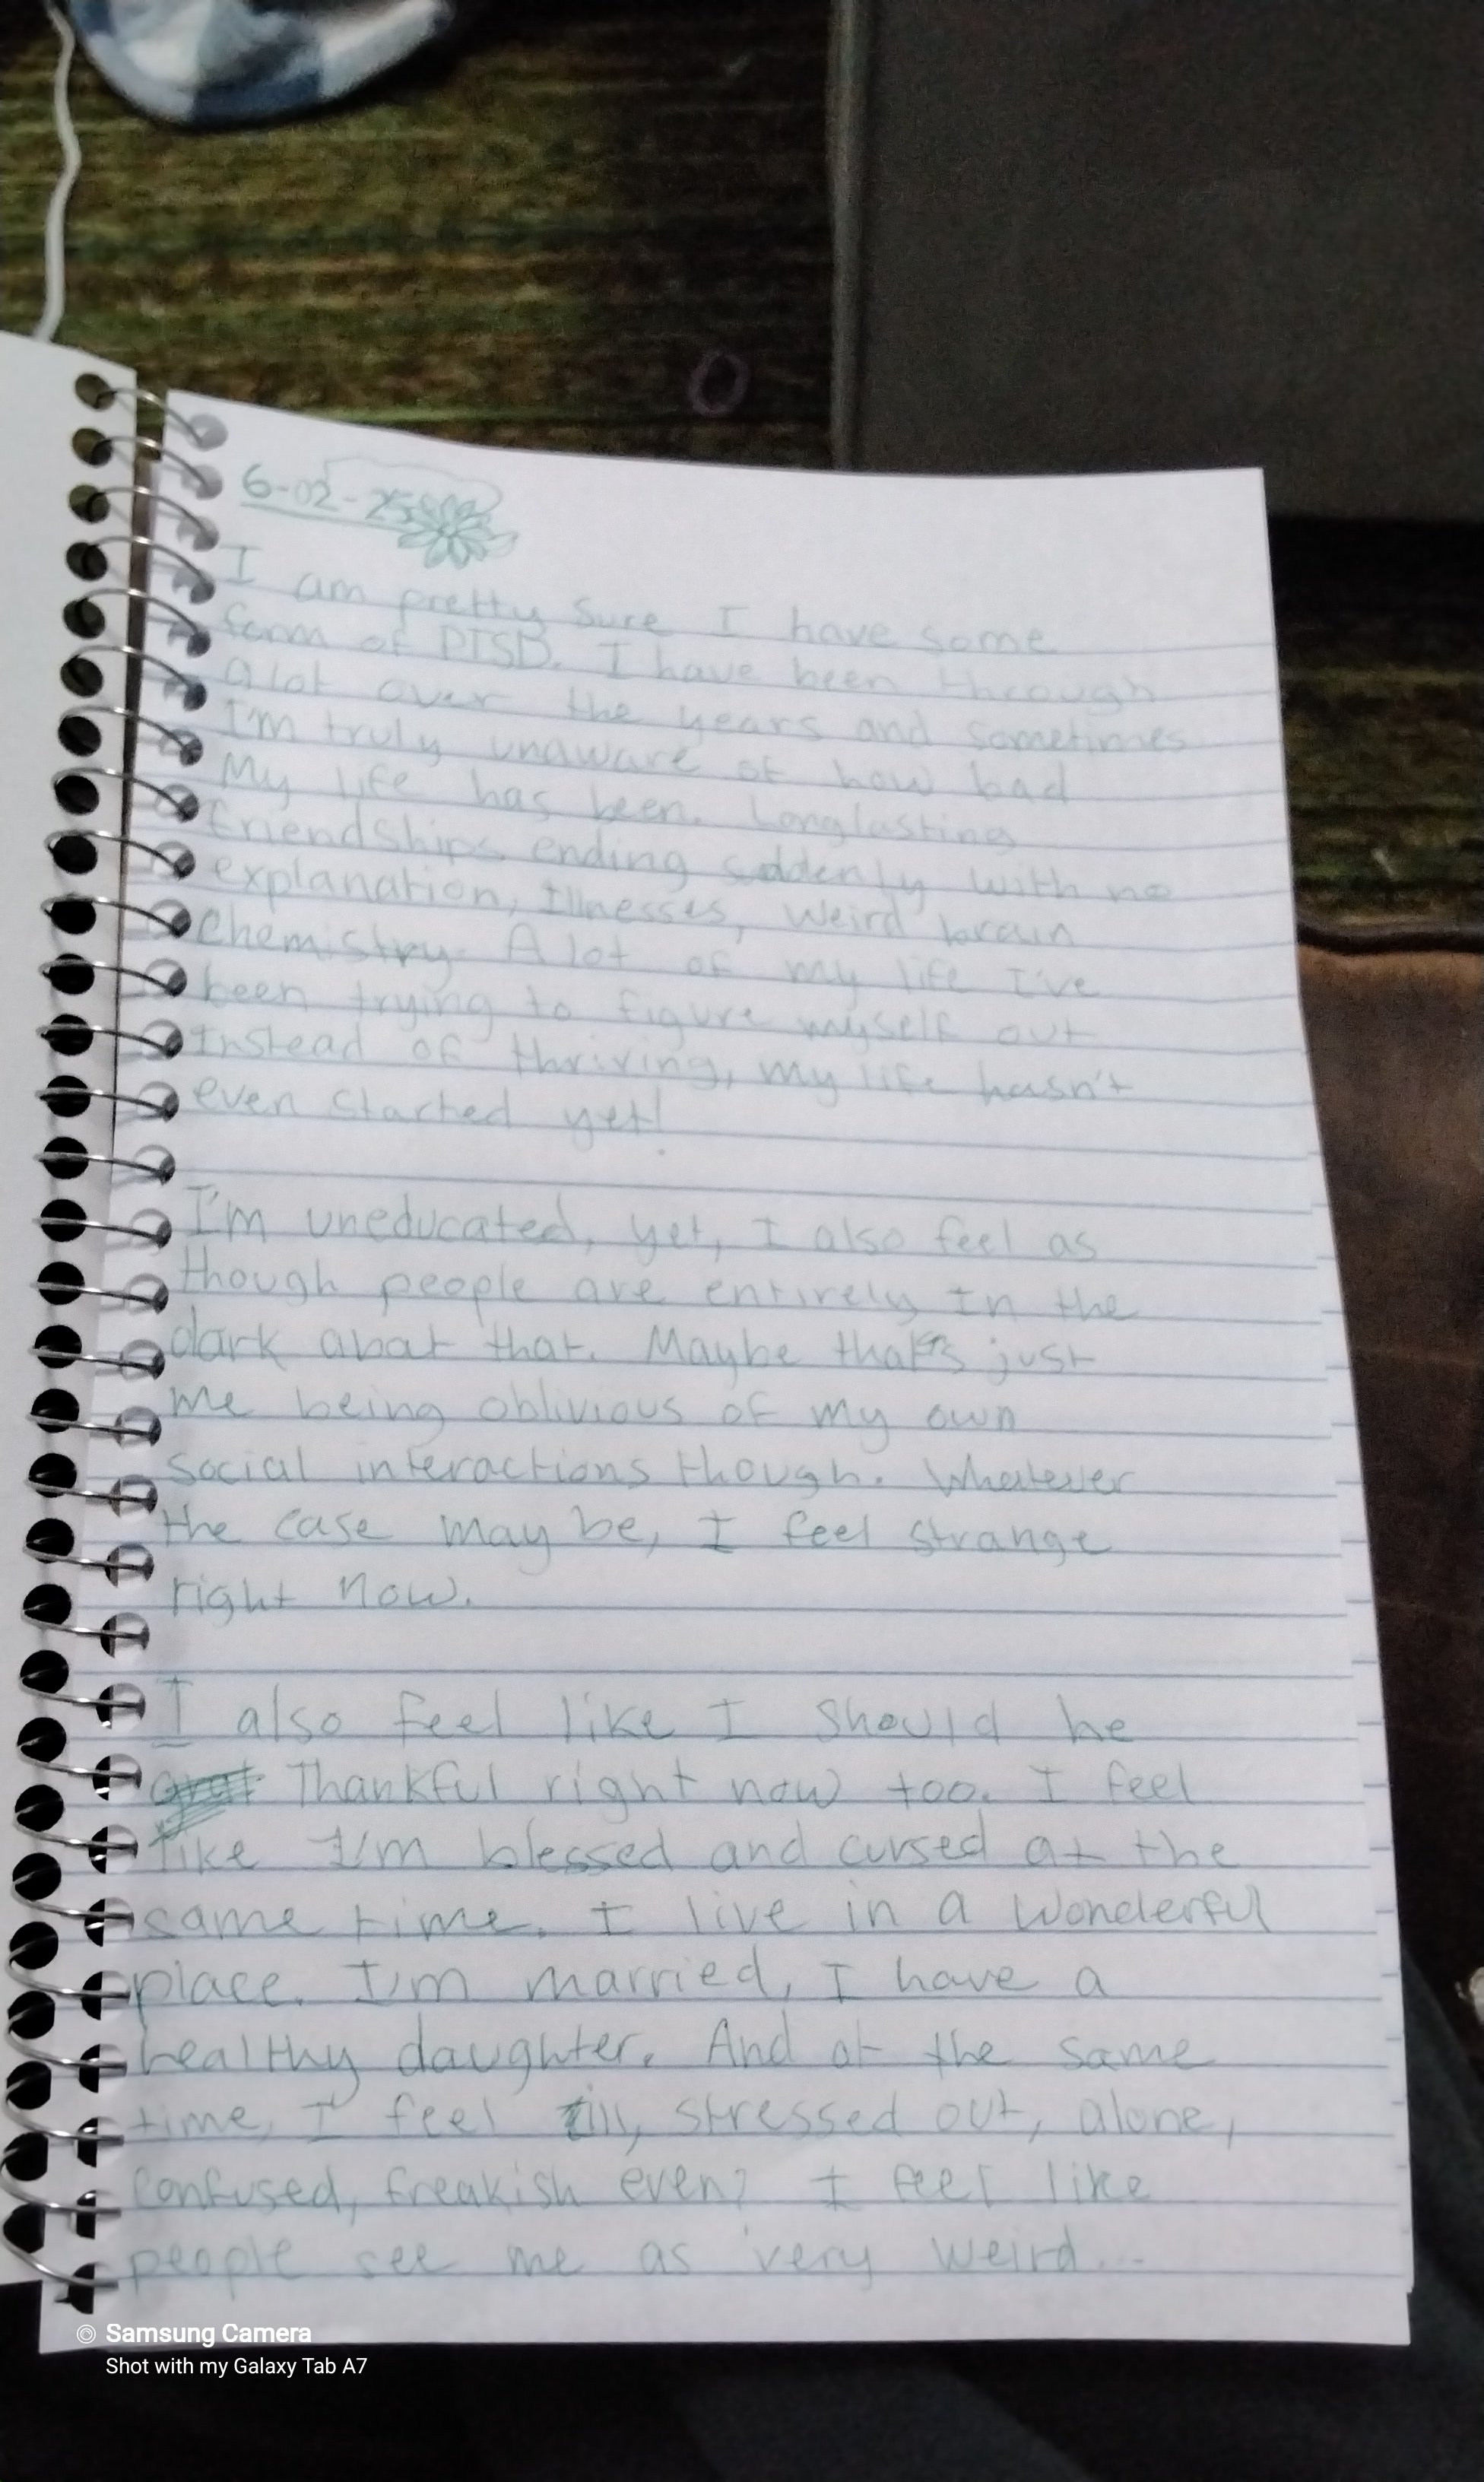 6-02-25
I am pretty sure I have some
form of PTSD. I have been through
alot over the years and sometimes
I'm truly unaware of how bad
My life has been. Longlasting
friendships ending suddenly with no
explanation, Illnesses, weird brain
chemistry. A lot of my life I've
been trying to figure myself out
Instead of thriving, my life hasn't
even started yet!
I'm uneducated, yet, I also feel as
though people are entirely In the
dark about that. Maybe that's just
me being oblivious of my own
social interactions though. Whatever
the case may be, I feel strange
right now.
I also feel like I should be
Thankful right now too. I feel
like I'm blessed and cursed at the
same time. I live in a wonderful
place. I'm married, I have a
healthy daughter. And at the same
time, I feel ill, stressed out, alone,
confused, freakish even? I feel like
people see me as very weird...
Samsung Camera
Shot with my Galaxy Tab A7